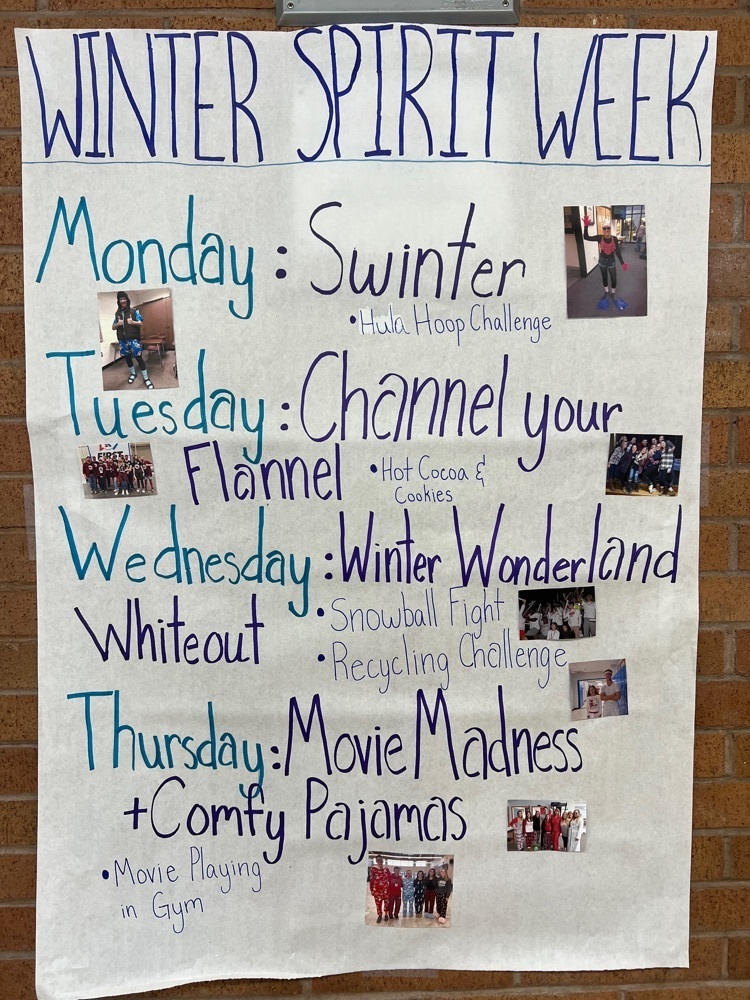 WINTER SPIRIT WEEK
Monday: Swinter
• Hula Hoop Challenge
Tuesday: Channel your
Flannel • Hot Cocoa &
Cookies
Wednesday: Winter Wonderland
Whiteout • Snowball Fight
• Recycling Challenge
Thursday: Movie Madness
+ Comfy Pajamas
• Movie Playing
in Gym